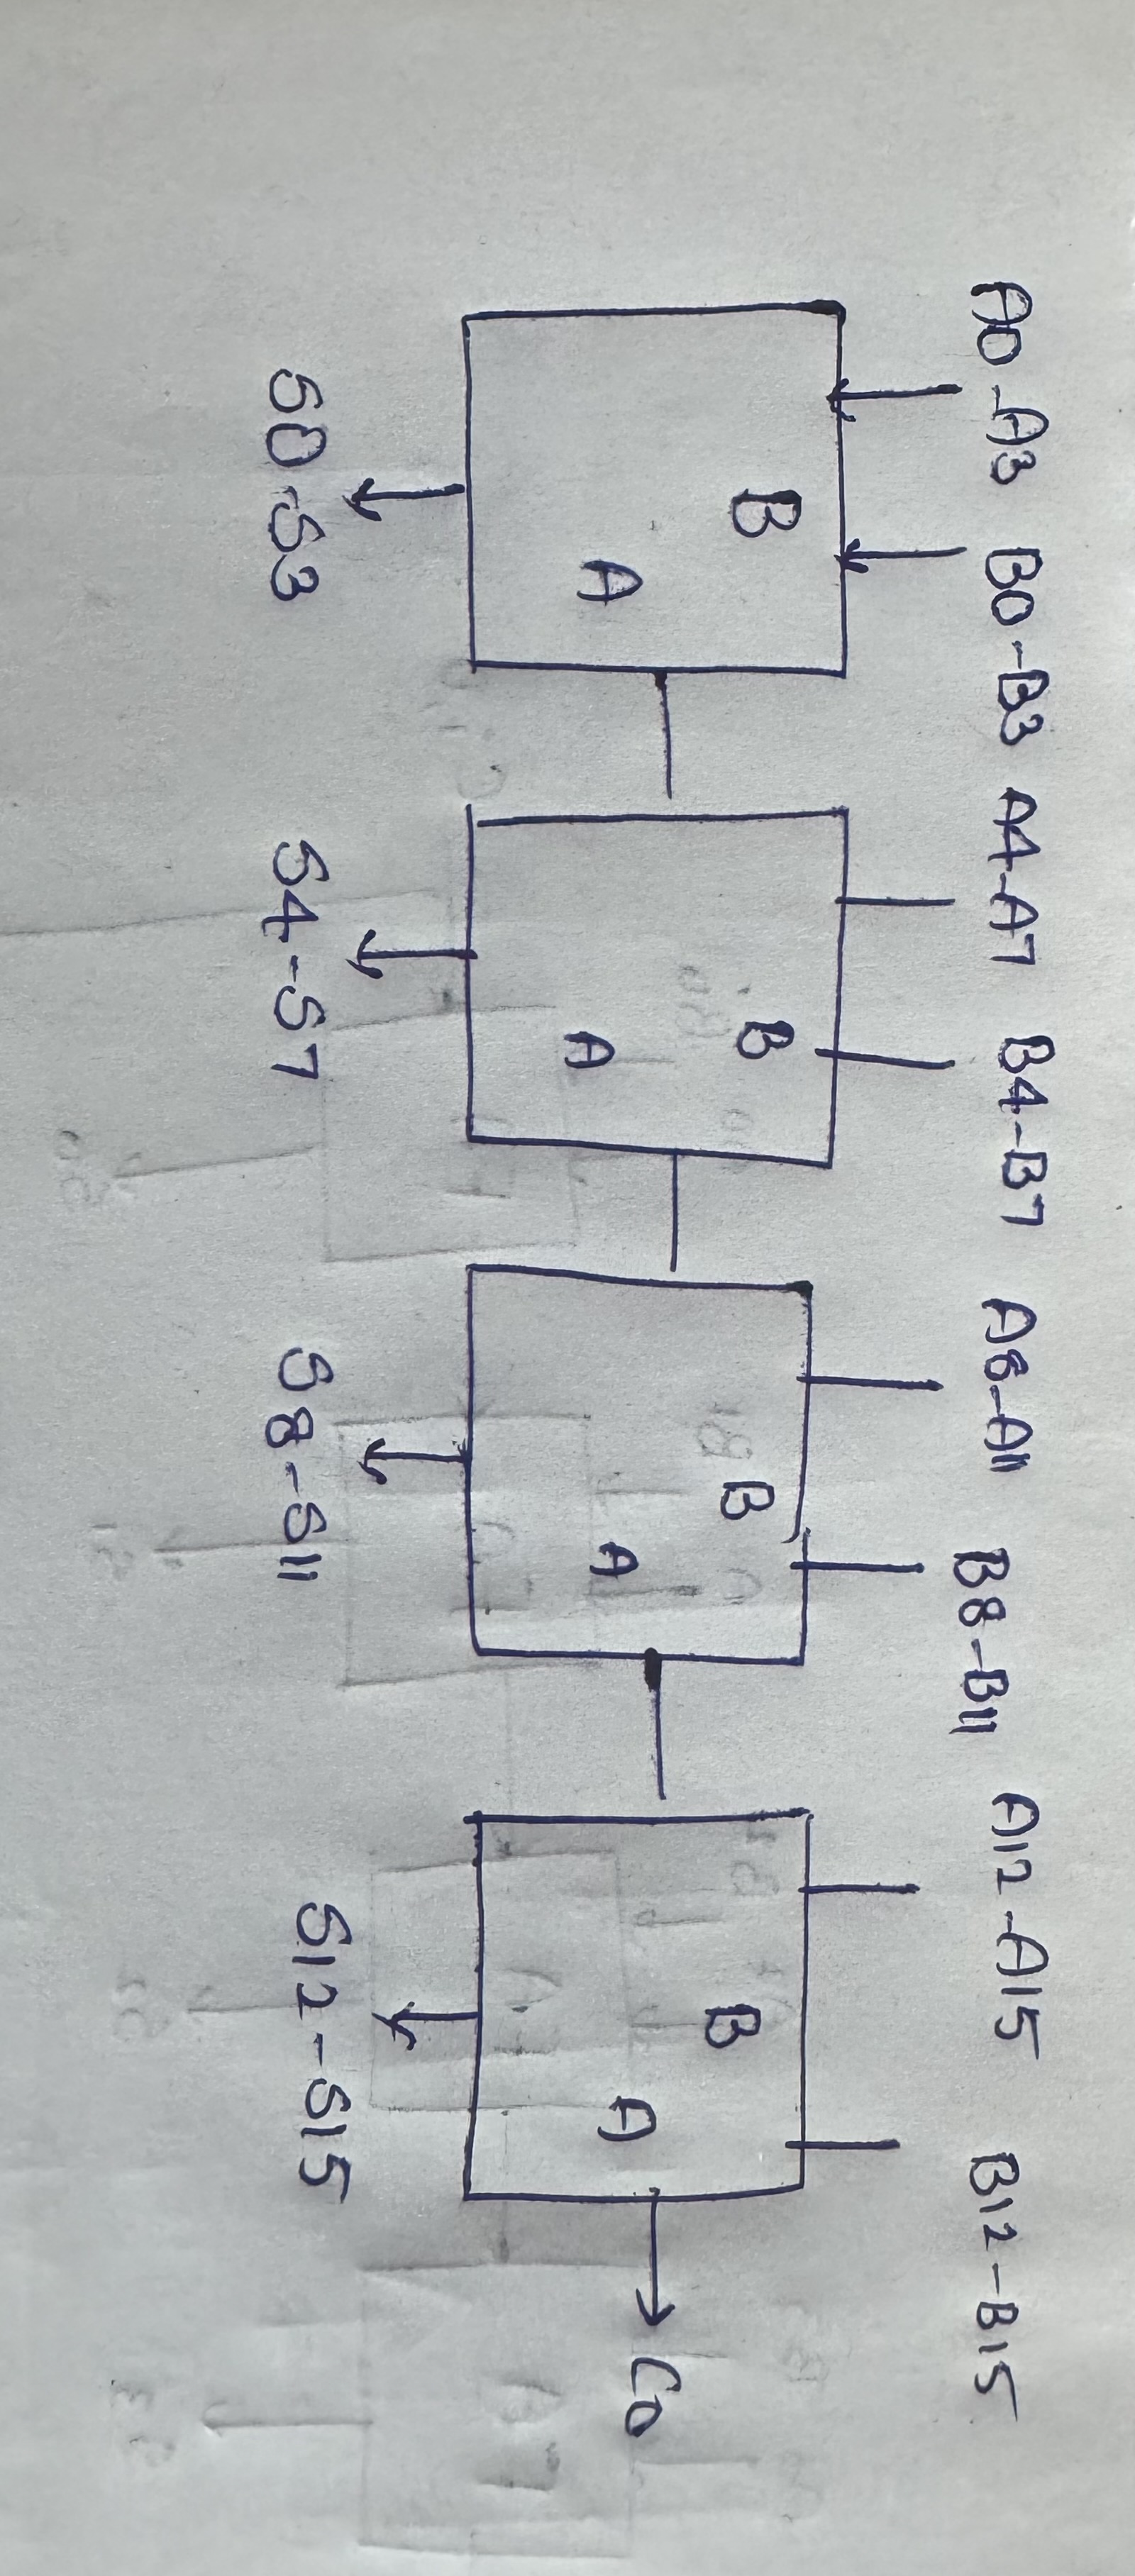 A0-A3 B0-B3 A4-A7 B4-B7 A8-A11 B8-B11 A12-A15 B12-B15
B B B B
A A A A C0
S0-S3 S4-S7 S8-S11 S12-S15